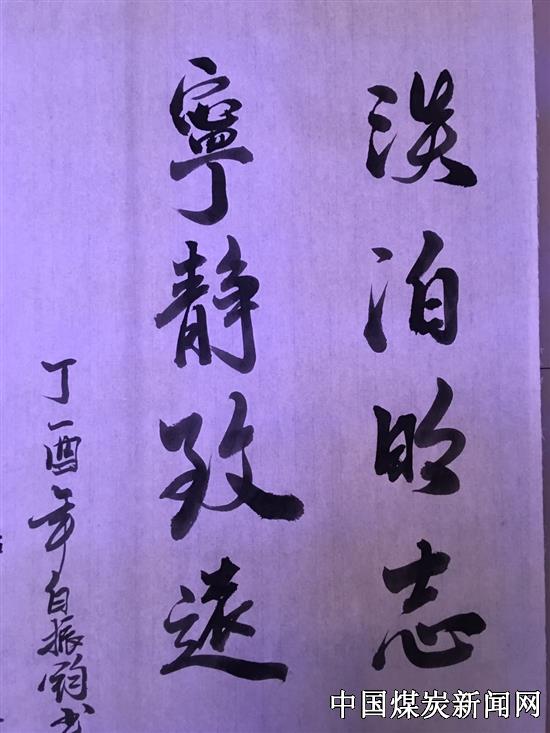 淡泊明志
寧静致遠
丁酉年白振鈞书
中国煤炭新闻网